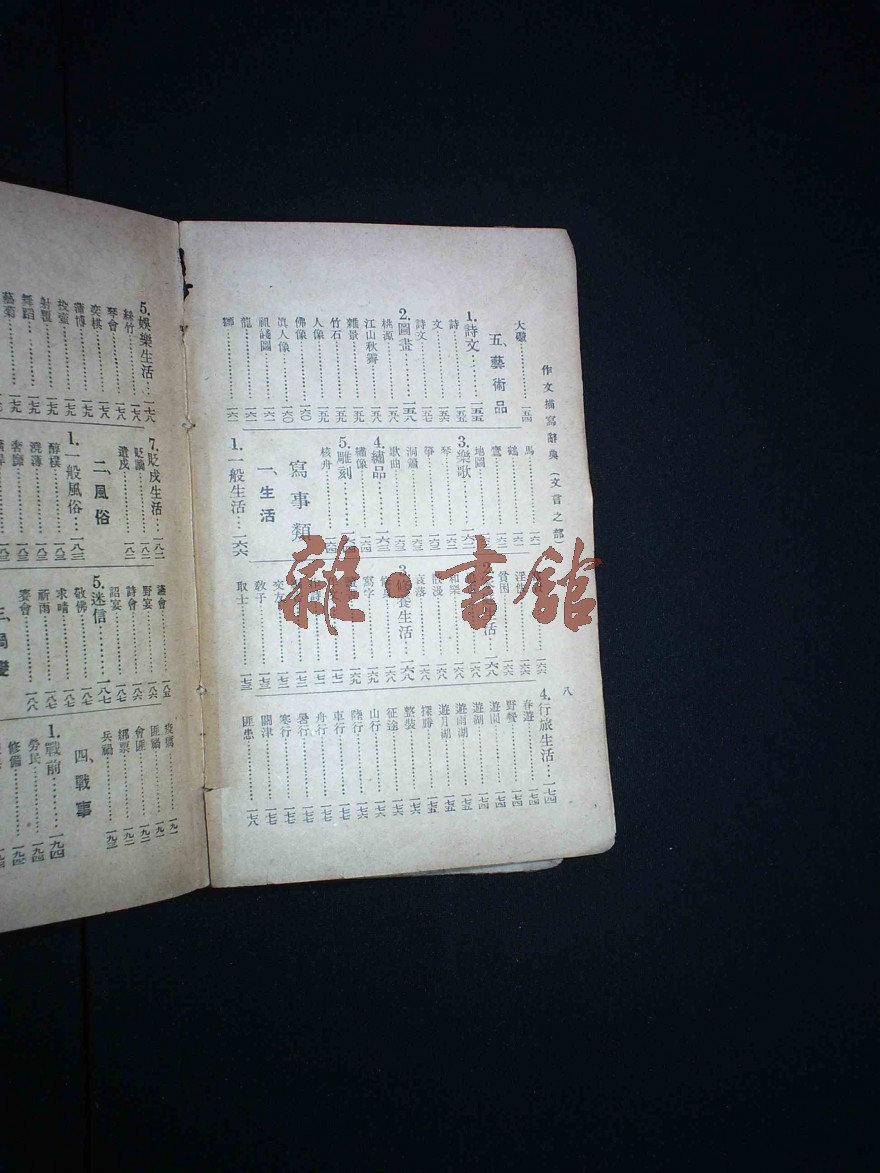 作文描寫辭典（文言之部）
八
大礮…一五四
五、藝術品
1.詩文…一五五
詩…一五五
文…一五六
詩文…一五七
2.圖畫…一五八
桃源…一五八
江山秋霽…一五八
雜景…一五九
竹石…一五九
人像…一五九
佛像…一六〇
真人像…一六〇
祖餞圖…一六一
龍…一六一
獅…一六一
馬…一六二
鶴…一六二
鷹…一六二
地圖…一六二
3.樂歌…一六二
琴…一六二
箏…一六二
洞簫…一六三
歌曲…一六三
4.繡品…一六三
繡像…一六四
5.雕刻…一六四
核舟…一六四
寫事類
一、生活
1.一般生活…一六六
淫
貧困…一六六
生活…一六八
和樂
浪漫…一六八
哀落…一六八
3.修養生活…一六八
寫字…一六九
交友…一七二
教子…一七三
取士…一七三
4.行旅生活…一七四
春遊…一七四
野餐…一七四
遊園…一七四
遊湖…一七四
遊南湖…一七五
遊月湖…一七五
探勝…一七五
整裝…一七六
征途…一七六
山行…一七六
陸行…一七六
車行…一七七
舟行…一七七
暑行…一七七
寒行…一七七
關津…一七七
匪患…一七八
5.娛樂生活…一七八
絲竹…一七八
琴會…一七八
奕棋…一七九
蒲博…一七九
投壺…一七九
射覆…一七九
舞蹈
藝菊
7.貶戍生活…一八二
貶謫…一八二
遣戍…一八二
二、風俗
1.一般風俗…一八三
醇樸…一八三
澆薄…一八三
奢靡…一八三
讌會…一八五
野宴…一八六
詩會…一八六
詔宴…一八七
5.迷信…一八七
敬佛…一八七
求晴…一八七
祈雨…一八七
賽會…一八八
三、禍變
匪禍…一九一
會匪…一九二
綁票…一九二
兵禍…一九三
四、戰事
1.戰前…一九四
勞民…一九四
修備
雜·書館